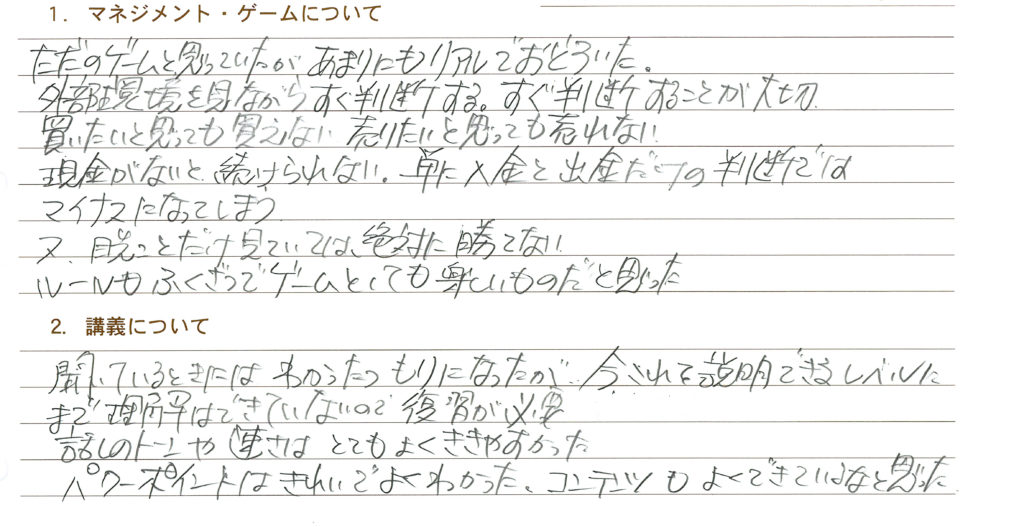 1. マネジメント・ゲームについて
ただのゲームと思っていたが あまりにもリアルでおどろいた。
外部環境を見ながらすぐ判断する。すぐ判断することが大切
買いたいと思っても買えない 売りたいと思っても売れない
現金がないと、続けられない。単に入金と出金だけの判断では
マイナスになってしまう
又、目先のことだけ見ていては、絶対に勝てない
ルールもふくざつでゲームとしても楽しいものだと思った
2. 講義について
聞いているときにはわかったつもりになったが、今これを説明できるレベルに
まで理解はできていないので復習が必要
話しのトーンや速さはとてもよくききやすかった
パワーポイントはきれいでよくわかった、コンテンツもよくできているなと思った